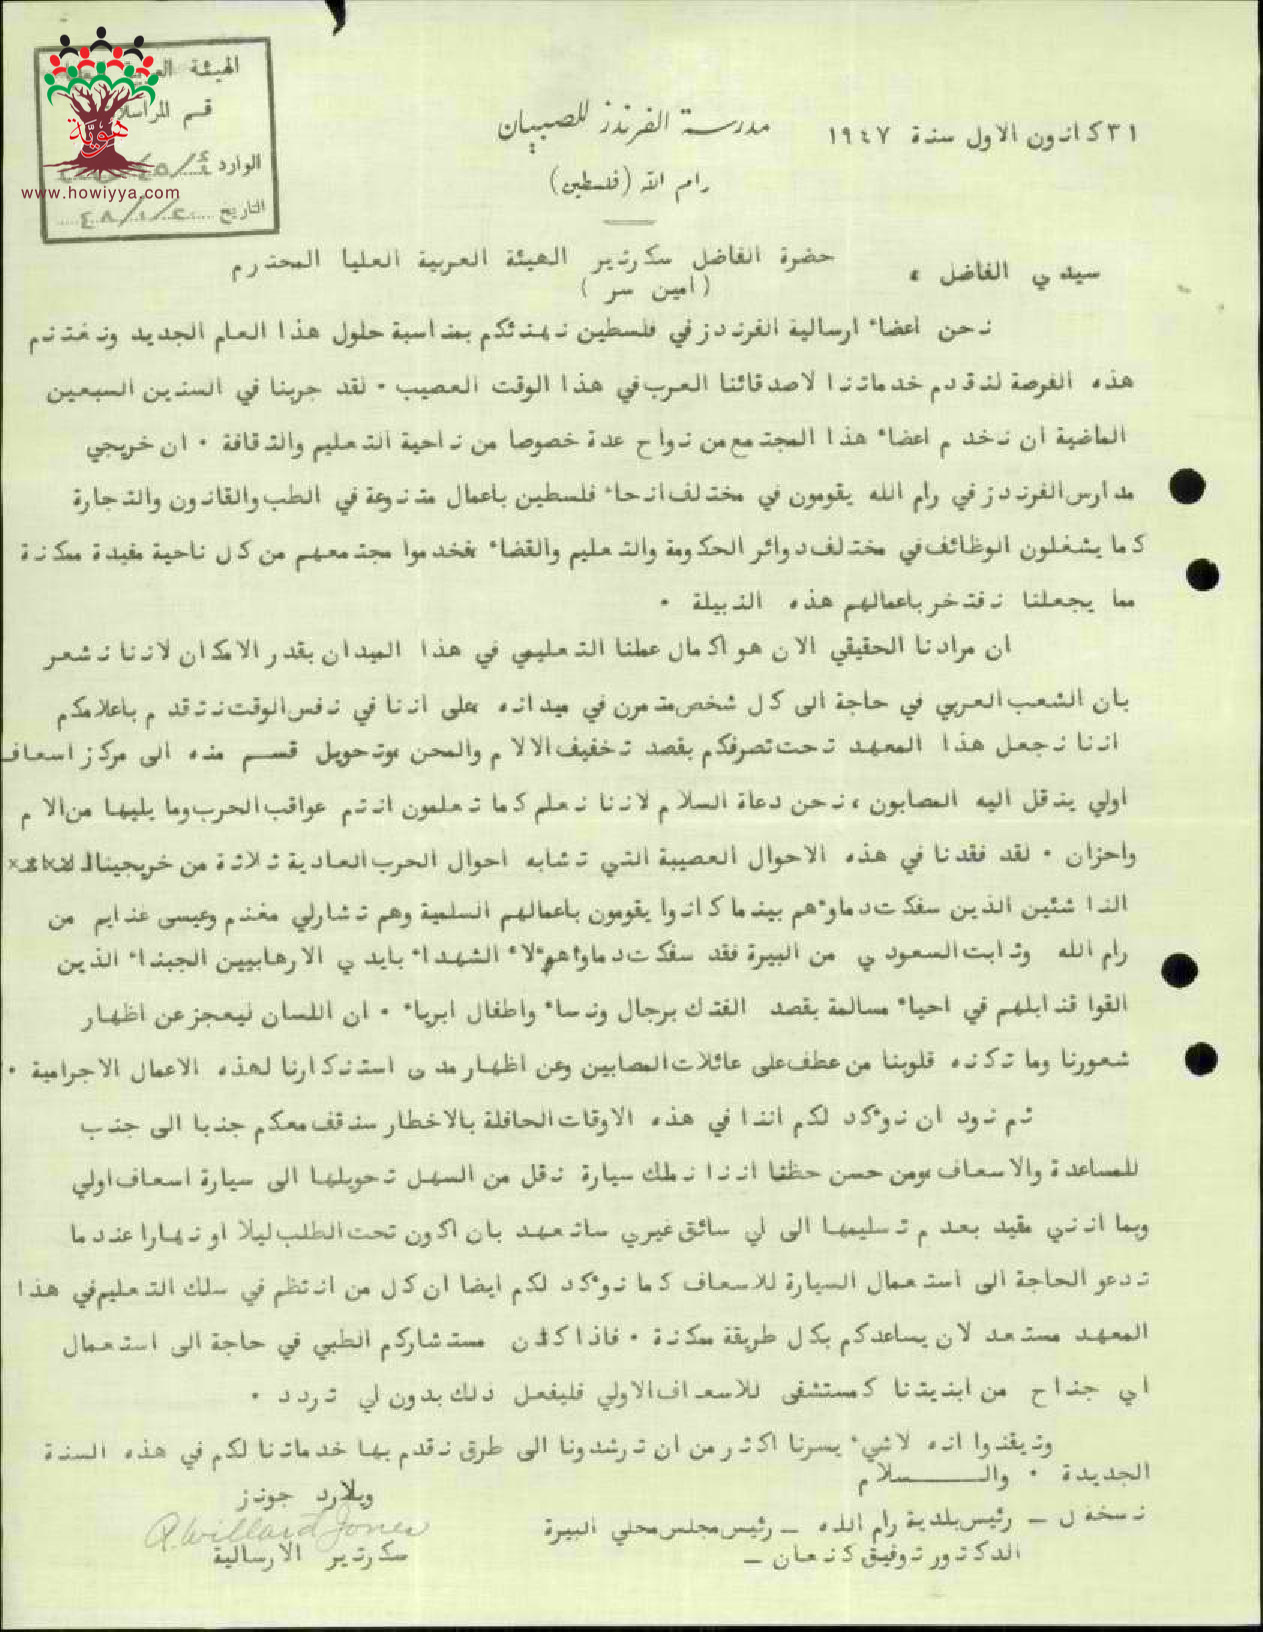 الهيئة العربية
قسم المراسلا
الوارد
التاريخ ٤٨/١/٢٠
هوية
www.howiyya.com
٣١ كانون الاول سنة ١٩٤٧
مدرسة الفرندز للصبيان
رام الله (فلسطين)
سيدي الفاضل ،
حضرة الفاضل سكرتير الهيئة العربية العليا المحترم
(امين سر)
نحن اعضاء ارسالية الفرندز في فلسطين نهنئكم بمناسبة حلول هذا العام الجديد ونغتنم
هذه الفرصة لنقدم خدماتنا لاصدقائنا العرب في هذا الوقت العصيب ٠ لقد جربنا في السنين السبعين
الماضية ان نخدم اعضاء هذا المجتمع من نواح عدة خصوصا من ناحية التعليم والثقافة ٠ ان خريجي
مدارس الفرندز في رام الله يقومون في مختلف انحاء فلسطين باعمال متنوعة في الطب والقانون والتجارة
كما يشغلون الوظائف في مختلف دوائر الحكومة والتعليم والقضاء فخدموا مجتمعهم من كل ناحية مفيدة ممكنة
مما يجعلنا نفتخر باعمالهم هذه النبيلة ٠
ان مرادنا الحقيقي الان هو اكمال عملنا التعليمي في هذا الميدان بقدر الامكان لاننا نشعر
بان الشعب العربي في حاجة الى كل شخص متمرن في ميدانه على اننا في نفس الوقت نتقدم باعلامكم
اننا نجعل هذا المعهد تحت تصرفكم بقصد تخفيف الالام والمحن وتحويل قسم منه الى مركز اسعاف
اولي ينقل اليه المصابون ، نحن دعاة السلام لاننا نعلم كما تعلمون انتم عواقب الحرب وما يليها من الام
واحزان ٠ لقد فقدنا في هذه الاحوال العصيبة التي تشابه احوال الحرب العادية ثلاثة من خريجينا
الناشئين الذين سفكت دماؤهم بينما كانوا يقومون باعمالهم السلمية وهم تشارلي مغنم وعيسى غنايم من
رام الله وثابت السعودي من البيرة فقد سفكت دماء هؤلاء الشهداء بايدي الارهابيين الجبناء الذين
القوا قنابلهم في احياء مسالمة بقصد الفتك برجال ونساء واطفال ابرياء ٠ ان اللسان ليعجز عن اظهار
شعورنا وما تكنه قلوبنا من عطف على عائلات المصابين وعن اظهار مدى استنكارنا لهذه الاعمال الاجرامية ٠
ثم نود ان نؤكد لكم اننا في هذه الاوقات الحافلة بالاخطار سنقف معكم جنبا الى جنب
للمساعدة والاسعاف ومن حسن حظنا اننا نملك سيارة نقل من السهل تحويلها الى سيارة اسعاف اولي
وبما انني مقيد بعدم تسليمها الى اي سائق غيري ساتعهد بان اكون تحت الطلب ليلا او نهارا عندما
تدعو الحاجة الى استعمال السيارة للاسعاف كما نؤكد لكم ايضا ان كل من انتظم في سلك التعليم في هذا
المعهد مستعد لان يساعدكم بكل طريقة ممكنة ٠ فاذا كان مستشاركم الطبي في حاجة الى استعمال
اي جناح من ابنيتنا كمستشفى للاسعاف الاولي فليفعل ذلك بدون اي تردد ٠
وتيقنوا انه لاشيء يسرنا اكثر من ان ترشدونا الى طرق نقدم بها خدماتنا لكم في هذه السنة
الجديدة ٠ والسلام
ويلارد جونز
A. Willard Jones
سكرتير الارسالية
نسخة ل ـ رئيس بلدية رام الله ـ رئيس مجلس محلي البيرة
الدكتور توفيق كنعان ـ